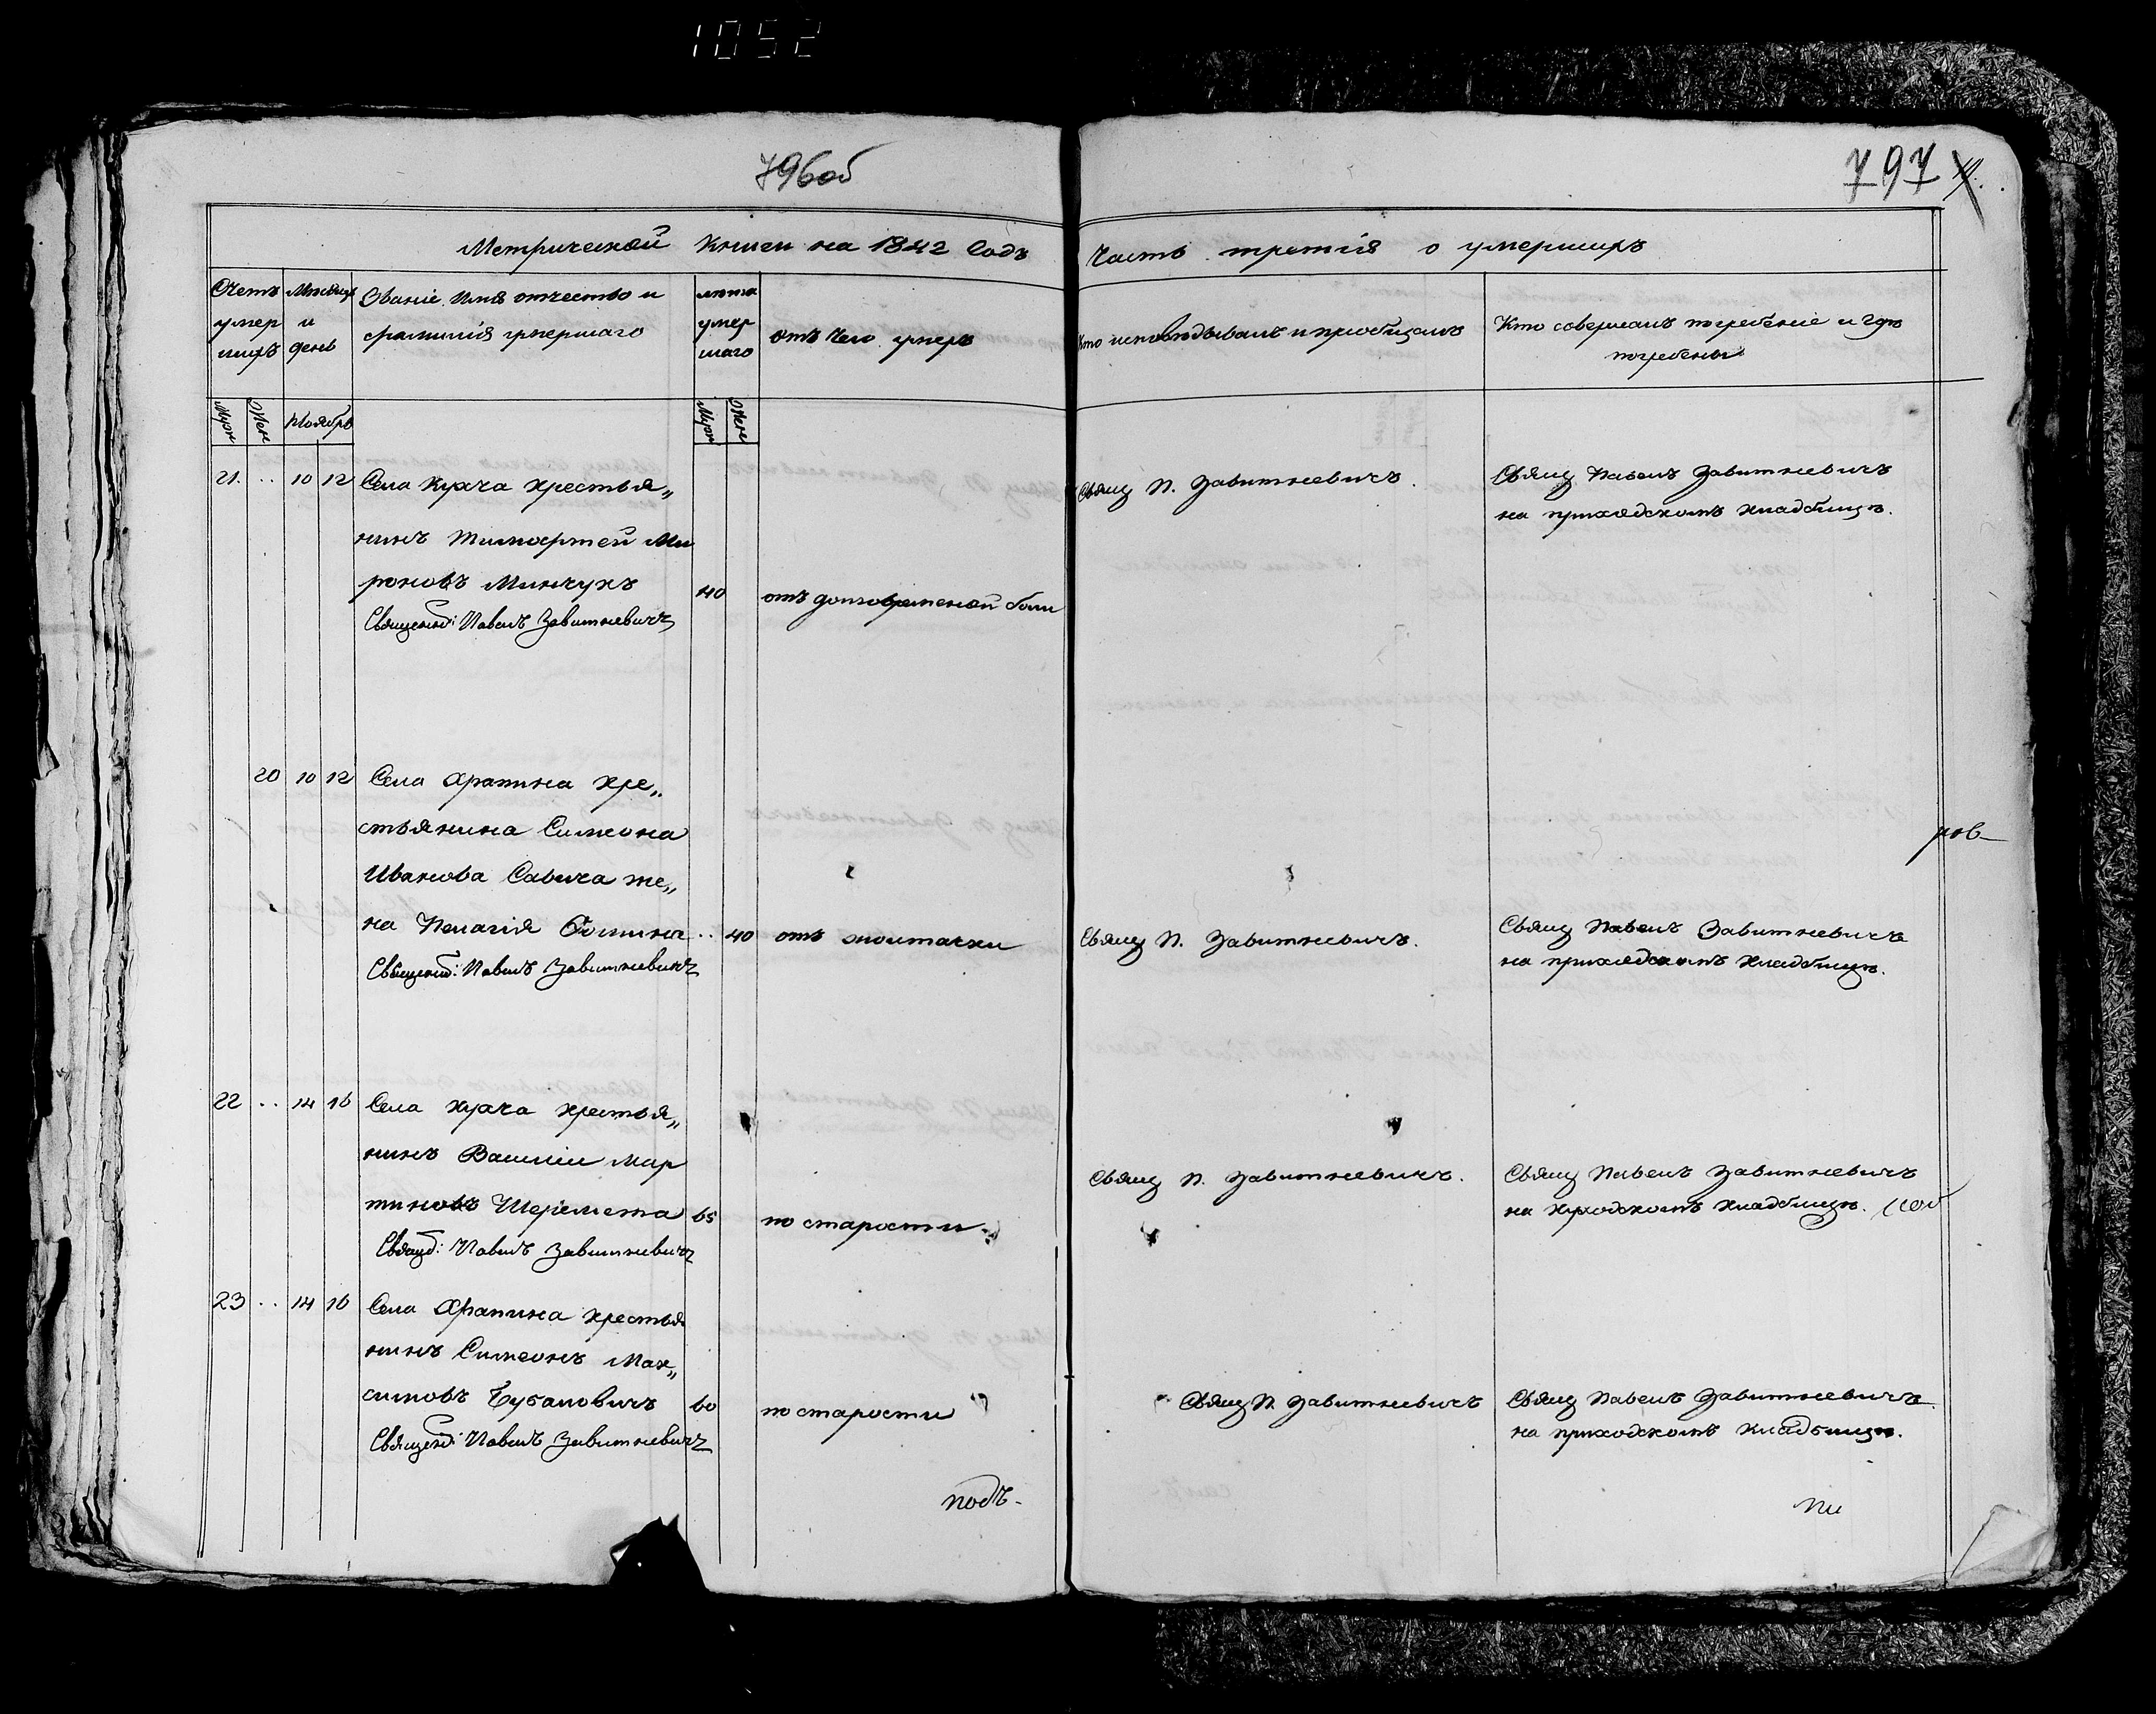 1052
796об
797
Метрической Книги на 1842 Годъ Часть третія о умершихъ
Счетъ умершихъ
Мѣсяцъ и день
Званіе Имя отчество и фамилія умершаго
лѣта умершаго
отъ чего умеръ
Кто исповѣдывалъ и пріобщалъ
Кто совершалъ погребеніе и гдѣ погребены
Муж Жен Ноябрь Муж Жен
21. .. 10 12 Села Куача крестья„
нинъ Тимофтей Ми
роновъ Минчукъ 40 отъ долговременой боли
Священно: Павелъ Завитневичъ
Свящ П. Завитневичъ.
Свящ Павелъ Завитневичъ
на приходскомъ кладбищѣ.
20 10 12 Села Храпина кре„
стьянина Симеона
Иванова Савича же„
на Пелагія Фомина .. 40 отъ жоwтачки
Священно: Павелъ Завитневичъ
Свящ П. Завитневичъ.
Свящ Павелъ Завитневичъ
на приходскомъ кладбищѣ.
ров
22 .. 14 16 Села Куача крестья„
нинъ Василіи Мар
тиновъ Шеремета 65 по старости
Свящ: Павелъ Завитневичъ
Свящ П. Завитневичъ.
Свящ Павелъ Завитневичъ
на приходскомъ кладбищѣ.
23 .. 14 16 Села Храпина крестья
нинъ Симеонъ Мак„
симовъ Бубановичъ 60 по старости
Священно: Павелъ Завитневичъ
Свящ П. Завитневичъ
Свящ Павелъ Завитневичъ
на приходскомъ кладбищѣ.
подъ-
пи